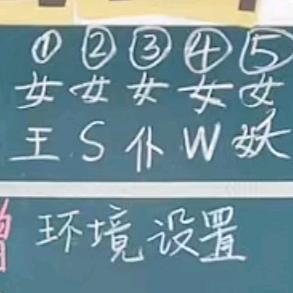 ① ② ③ ④ ⑤
女 女 女 女 女
王 S 仆 W 妖
环境设置